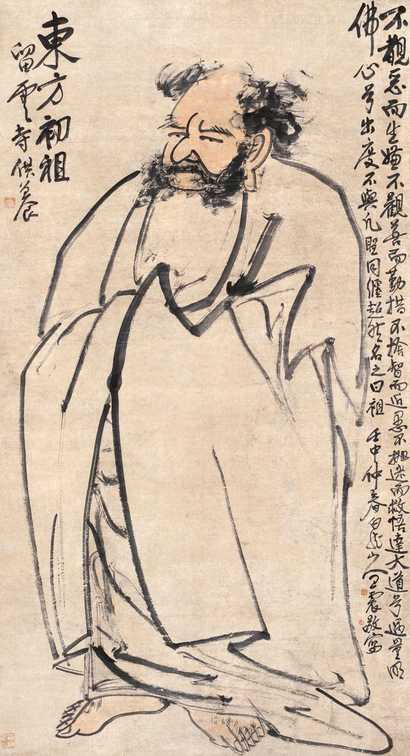 不觀惡而生嫌不觀善而勤措不捨智而近愚不拋迷而救悟達大道兮過量明
佛心兮出度不與凡聖同纏超然名之曰祖 壬申仲春白龍山人王震敬寫
東方初祖
留雲寺供養